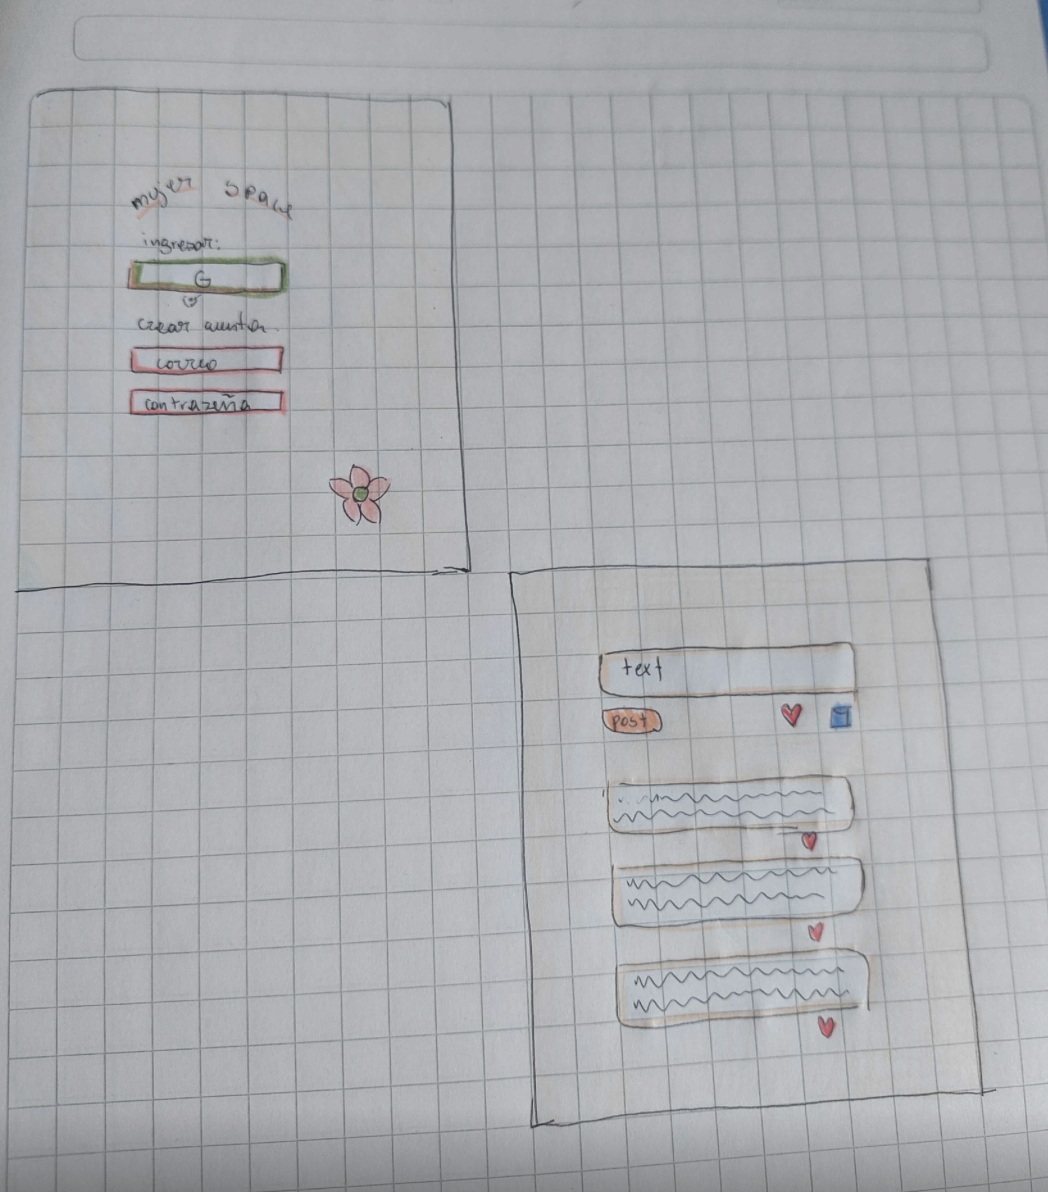 mujer space
ingresar:
G
crear cuenta
correo
contrazeña
text
post